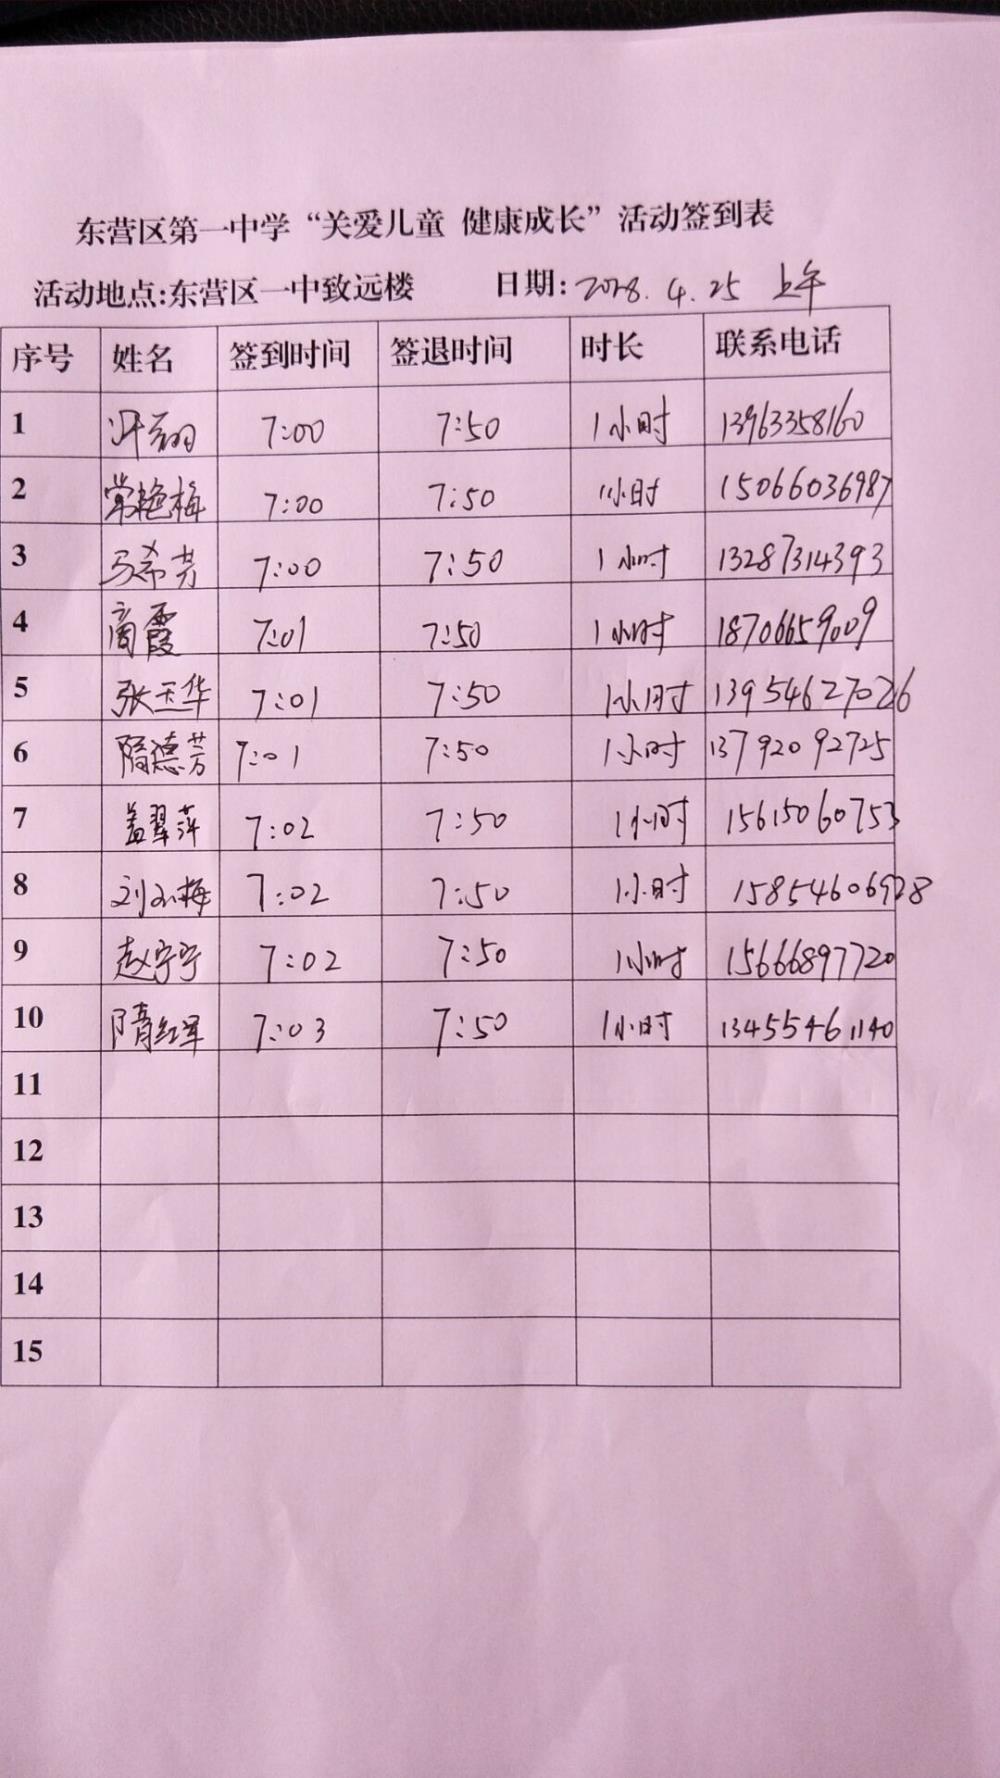 东营区第一中学“关爱儿童 健康成长”活动签到表
活动地点:东营区一中致远楼 日期: 2018.4.25 上午
序号 姓名 签到时间 签退时间 时长 联系电话
1 7:00 7:50 1小时 13963358160
2 常艳梅 7:00 7:50 1小时 15066036987
3 马希芳 7:00 7:50 1小时 13287314393
4 商霞 7:01 7:50 1小时 18706659009
5 张玉华 7:01 7:50 1小时 13954627026
6 隋德芳 7:01 7:50 1小时 13792092725
7 盖翠萍 7:02 7:50 1小时 15615060753
8 7:02 7:50 1小时 15854606928
9 赵宁宁 7:02 7:50 1小时 15666897720
10 隋红军 7:03 7:50 1小时 13455461140
11
12
13
14
15